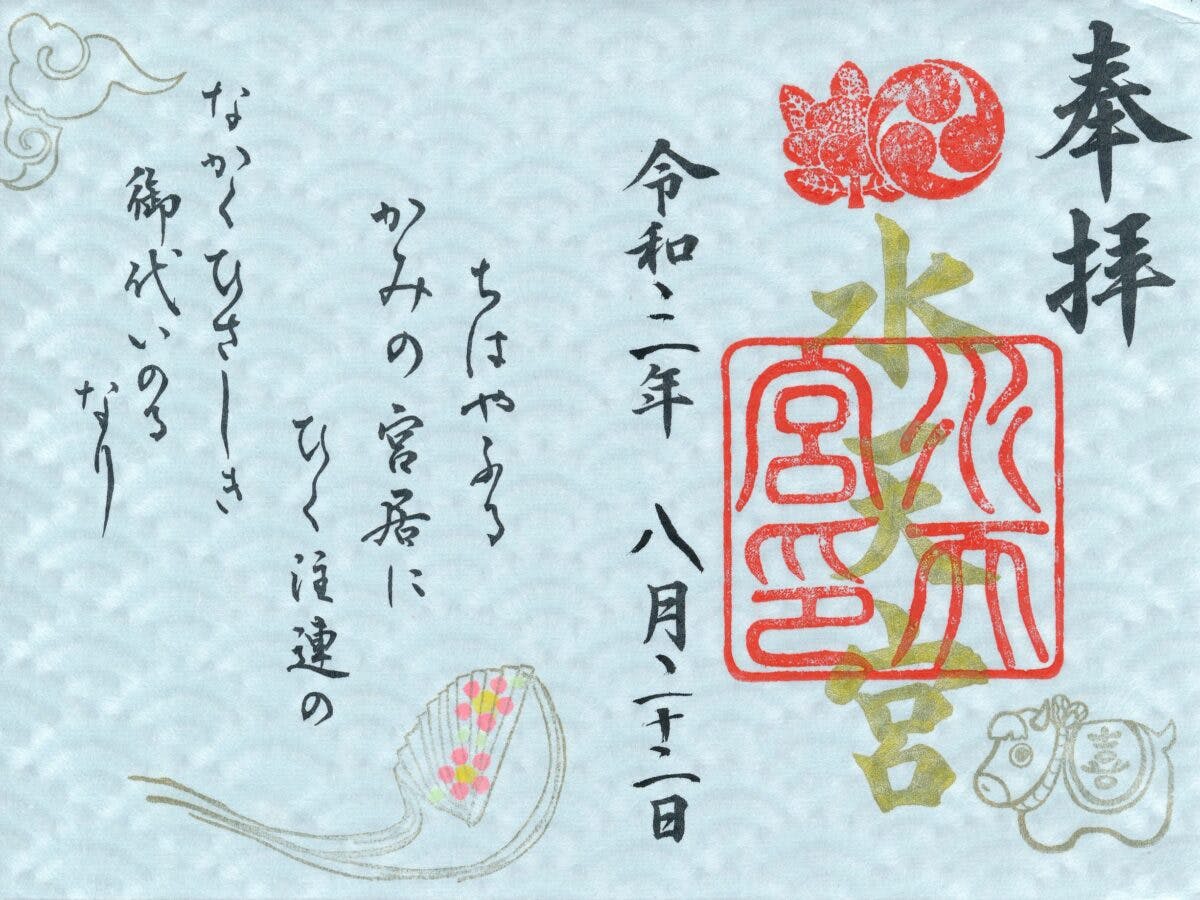 奉拝
水天宮
水天宮印
喜
令和三年 八月二十三日
ちはやふる
かみの宮居に
ひく注連の
なかくひさしき
御代いのる
なり